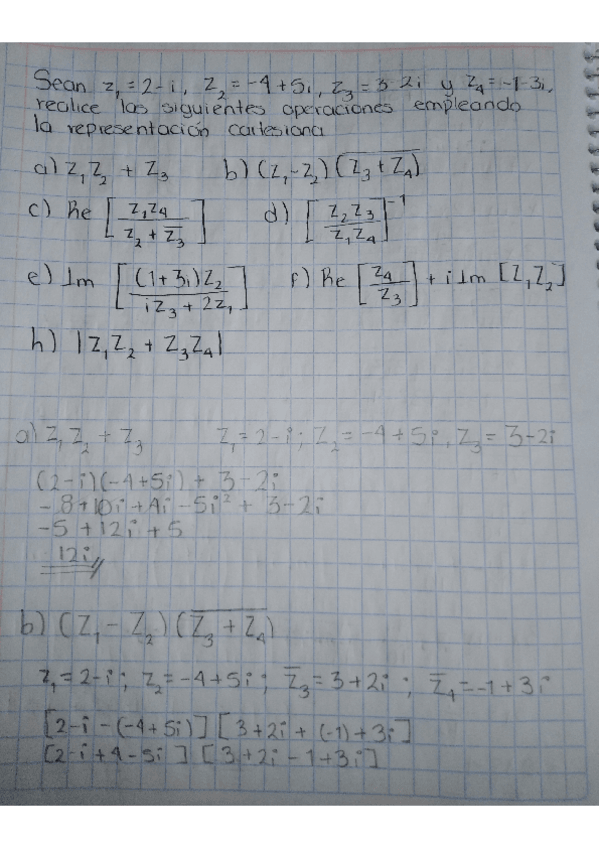 Sean z₁ = 2-i, z₂ = -4+5i, z₃ = 3-2i y z₄ = -1-3i,
realice las siguientes operaciones empleando
la representación cartesiana
a) z₁z₂ + z₃ b) (z₁-z₂)(\overline{z₃+z₄})
c) Re [\frac{z₁z₄}{z₂+\overline{z₃}}] d) [\frac{z₂z₃}{z₁z₄}]⁻¹
e) Im [\frac{(1+3i)z₂}{iz₃+2z₁}] f) Re [\frac{z₄}{z₃}] + i Im [z₁z₂]
h) |z₁z₂ + z₃z₄|
a) z₁z₂ + z₃ z₁ = 2-i ; z₂ = -4+5i, z₃ = 3-2i
(2-i)(-4+5i) + 3-2i
-8+10i+4i-5i² + 3-2i
-5+12i+5
12i
b) (z₁-z₂)(\overline{z₃+z₄})
z₁ = 2-i ; z₂ = -4+5i ; \overline{z}₃ = 3+2i ; \overline{z}₄ = -1+3i
[2-i-(-4+5i)] [3+2i+(-1)+3i]
[2-i+4-5i] [3+2i-1+3i]